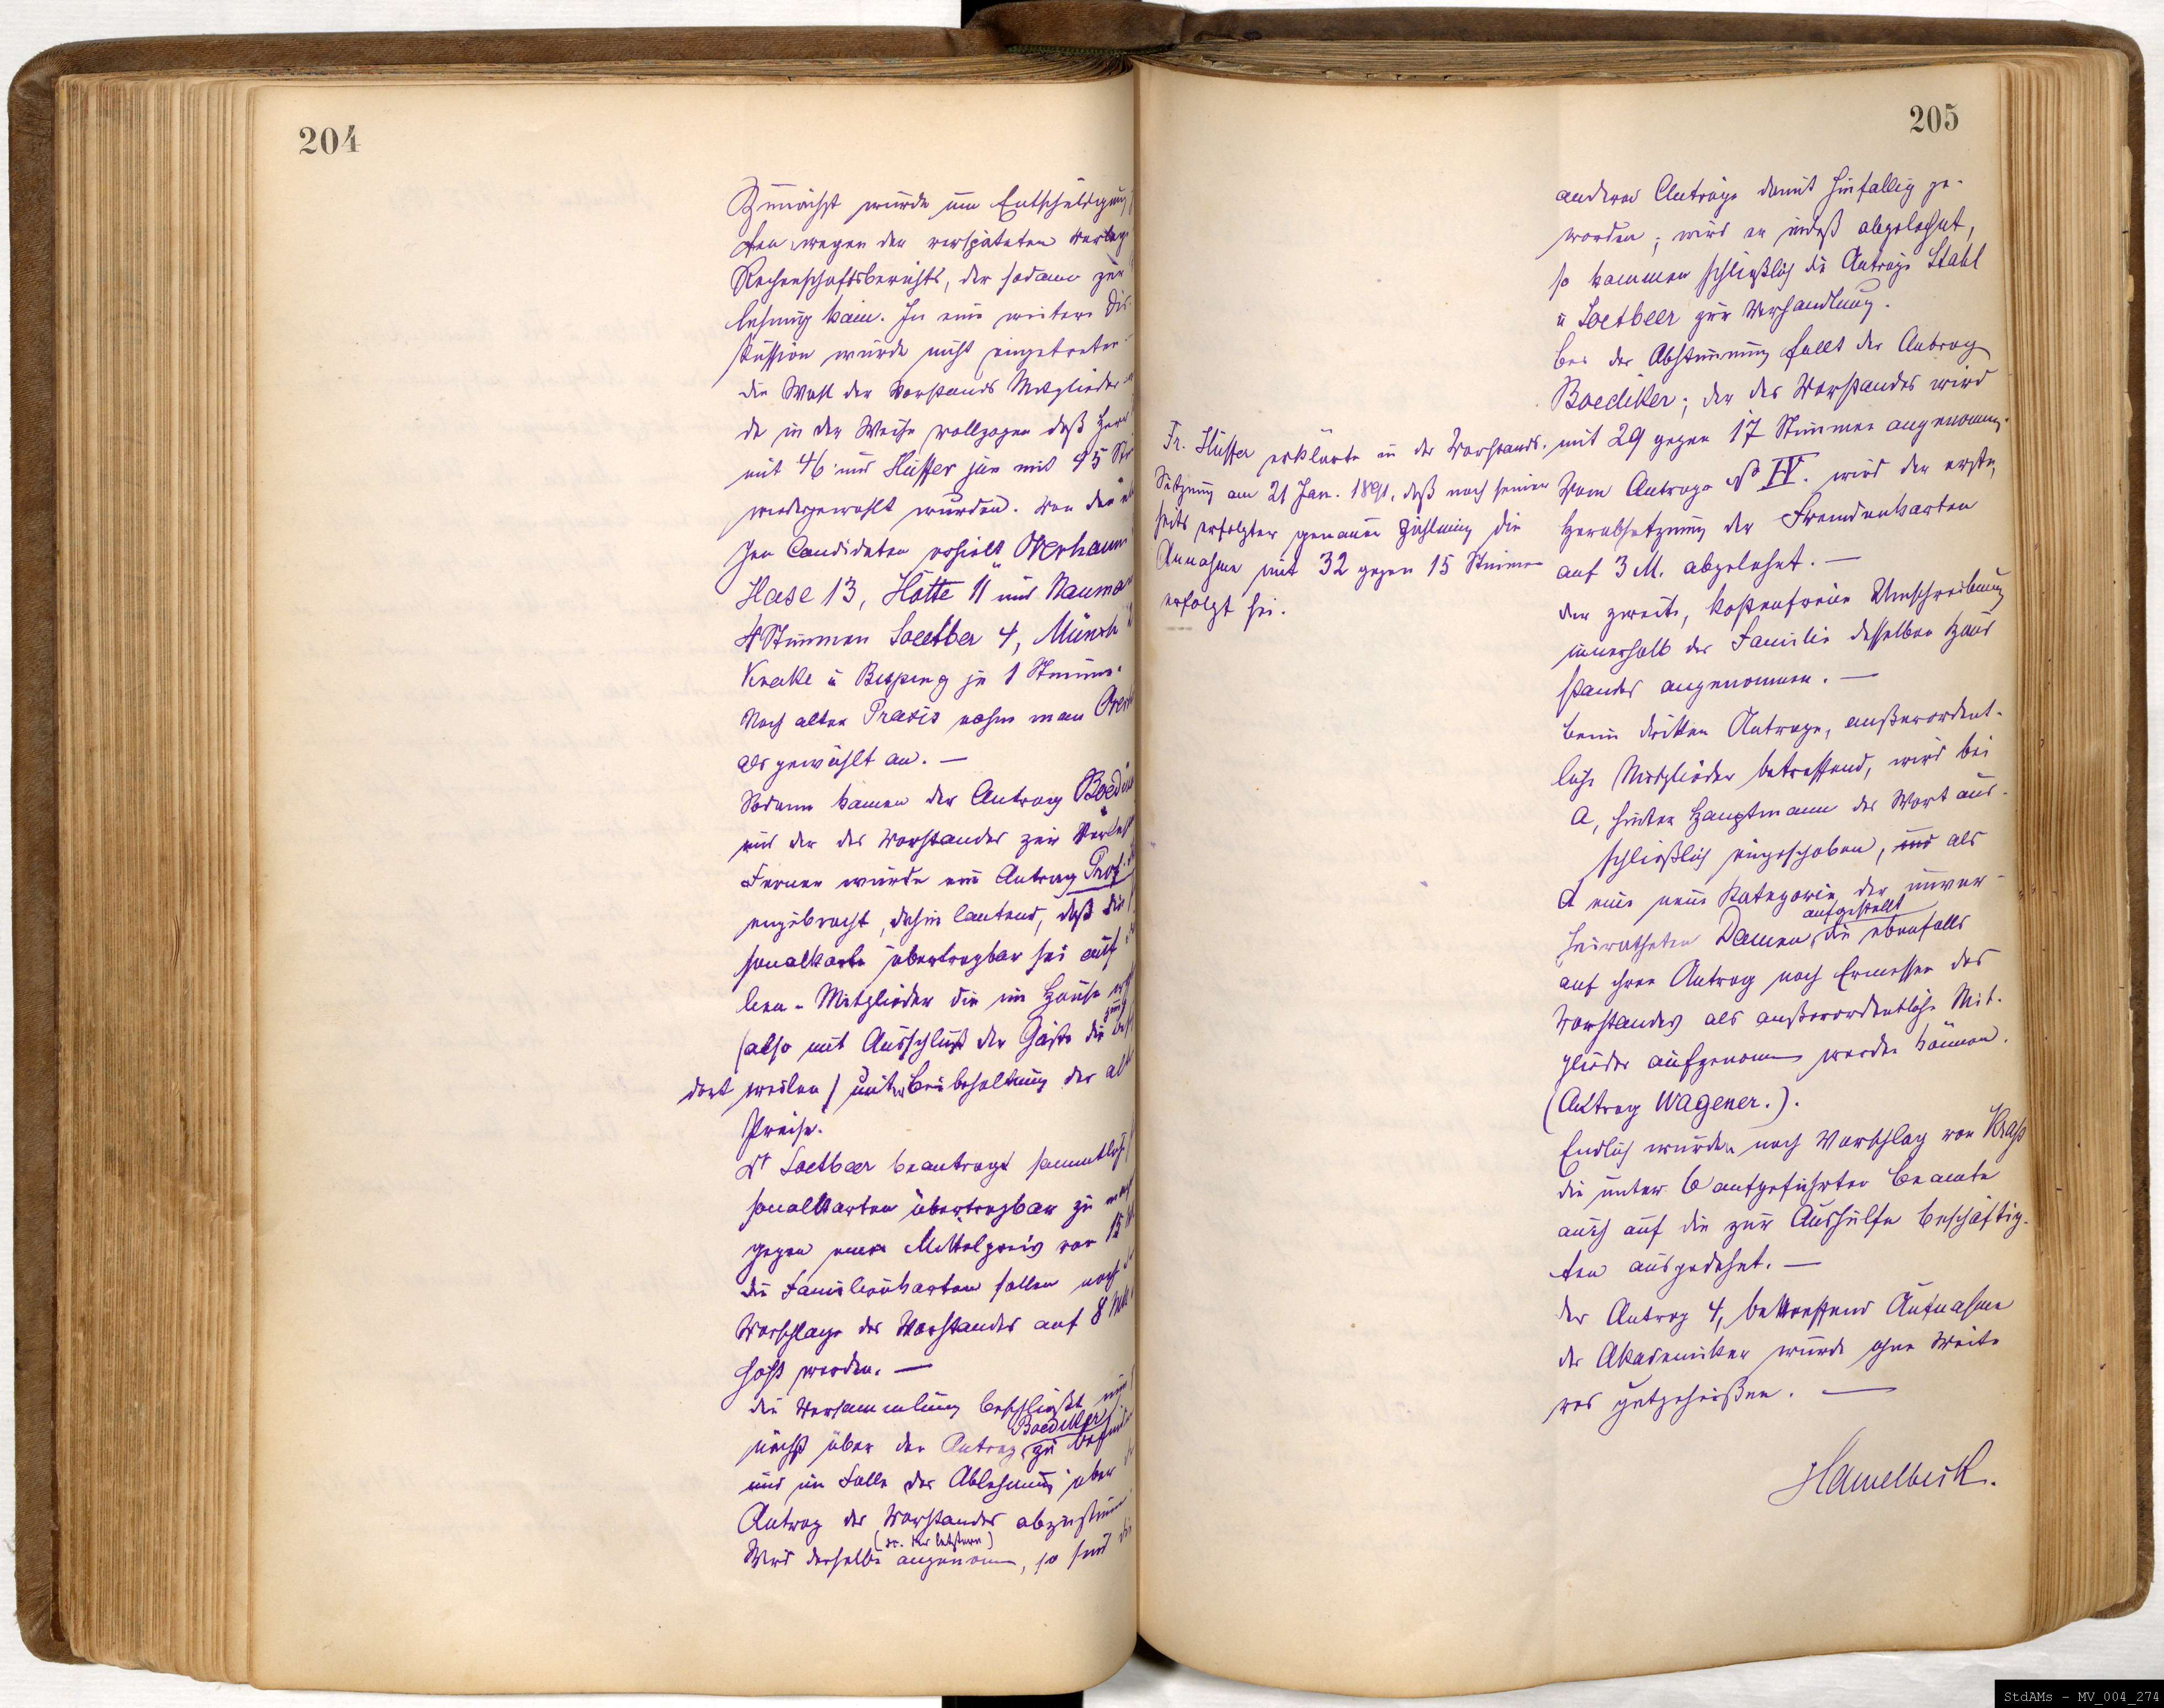 204
Zunächst wurde um Entschuldigung
ten wegen der verspäteten Vorlage
Rechenschaftsberichts, der sodann zur
lesung kam. In eine weitere Dis-
kussion wurde nicht eingetreten
die Wahl der Vorstands Mitglieder
de in der Weise vollzogen daß Herr
mit 46 und Hüffer jun mit 45 Sti
wiedergewählt wurden. Von den
gen Candidaten erhielt Overham
Hase 13, Hötte 11 und Nauma
4 Stimmen Soetber 4, Münch
Krake u Bisping je 1 Stimme.
Nach alter Praxis nahm man Over
als gewählt an. —
Sodann kamen der Antrag Boedik
und der des Vorstandes zur Verles
Ferner wurde ein Antrag Prof. St
eingebracht, dahin lautend, daß die
sonalkarte übertragbar sei auf
lien-Mitglieder die im Hause
(also mit Ausschluß der Gäste die
dort weilen) unter Beibehaltung der alt
Preise.
Dr Soetbeer beantragt sämmtliche
sonalkarten übertragbar zu mach
gegen einen Mittelpreis von 15 M
die Familienkarten sollen nach
Vorschlage des Vorstandes auf 8 Mk
höht werden. —
die Versammlung beschließt
nächst über den Antrag Boediker zu befinden
und im Falle der Ablehnung über
Antrag des Vorstandes abzustimm
Wird derselbe (sc. der letztere) angenommen, so sind die
205
anderen Anträge damit hinfällig ge-
worden; wird er indeß abgelehnt,
so kommen schließlich die Anträge Stahl
u Soetbeer zur Verhandlung.
bei der Abstimmung fällt der Antrag
Boediker; der des Vorstandes wird
mit 29 gegen 17 Stimmen angenommen.
Fr. Hüffer erklärte in der Vorstands-
Sitzung am 21 Jan. 1891, daß nach seiner
seits erfolgter genauer Zählung die
Annahme mit 32 gegen 15 Stimmen
erfolgt sei.
Vom Antrage No IV. wird der erste,
Herabsetzung der Fremdenkarten
auf 3 M. abgelehnt. —
der zweite, kostenfreie Umschreibung
innerhalb der Familie desselben Haus
standes angenommen. —
beim dritten Antrage, außerordent-
liche Mitglieder betreffend, wird bei
a, hinter Hauptmann das Wort aus-
schließlich eingeschoben, und als
d eine neue Kategorie der unver-
heiratheten Damen aufgestellt, die ebenfalls
auf ihren Antrag nach Ermessen des
Vorstandes als außerordentliche Mit-
glieder aufgenommen werden können.
(Antrag Wagener.).
Endlich wurden nach Vorschlag von Krass
die unter b aufgeführten Beamte
auch auf die zur Aushülfe beschäftig-
ten ausgedehnt. —
der Antrag 4, betreffend Aufnahme
der Akademiker wurde ohne Weite
res gutgeheißen. —
Hamelbeck.
StdAMs - MV_004_274